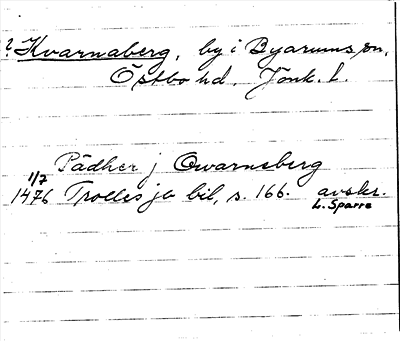 ? Kvarnaberg, by i Byarums sn,
Östbo hd. Jönk. l.
Pädher j Qwarneberg
1/7
1476 Trolles jb bil, s. 166. avskr.
L. Sparre